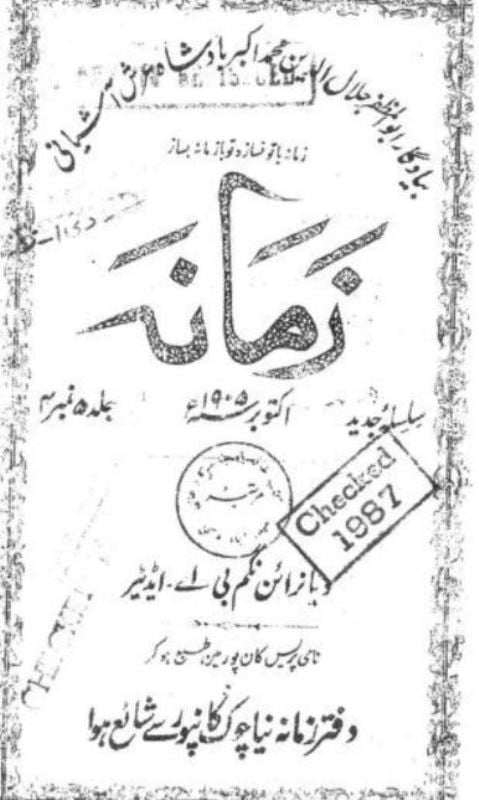 بیادگار ابوالمظفر جلال الدین محمد اکبر بادشاہ عرش آشیانی
زمانہ باتو نسازد تو بازمانہ بساز
زمانہ
سلسلۂ جدید اکتوبر ۱۹۰۵ء جلد ۵ نمبر ۴
Checked
1987
نرائن نگم بی اے - ایڈیٹر
نامی پریس کان پور مین طبع ہو کر
دفتر زمانہ نیا چوک کانپور سے شائع ہوا